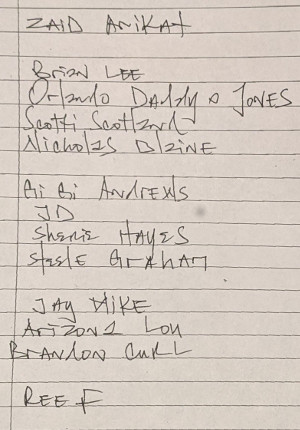 ZAID ARIKAT
Brian LEE
Orlando Daddy O JONES
Scotti Scotland
Nicholas Blaine
Gi Gi Andrews
JD
Sherie HAYES
Steele Graham
JAY MIKE
Arizona Lou
BRANDON CURL
REE F